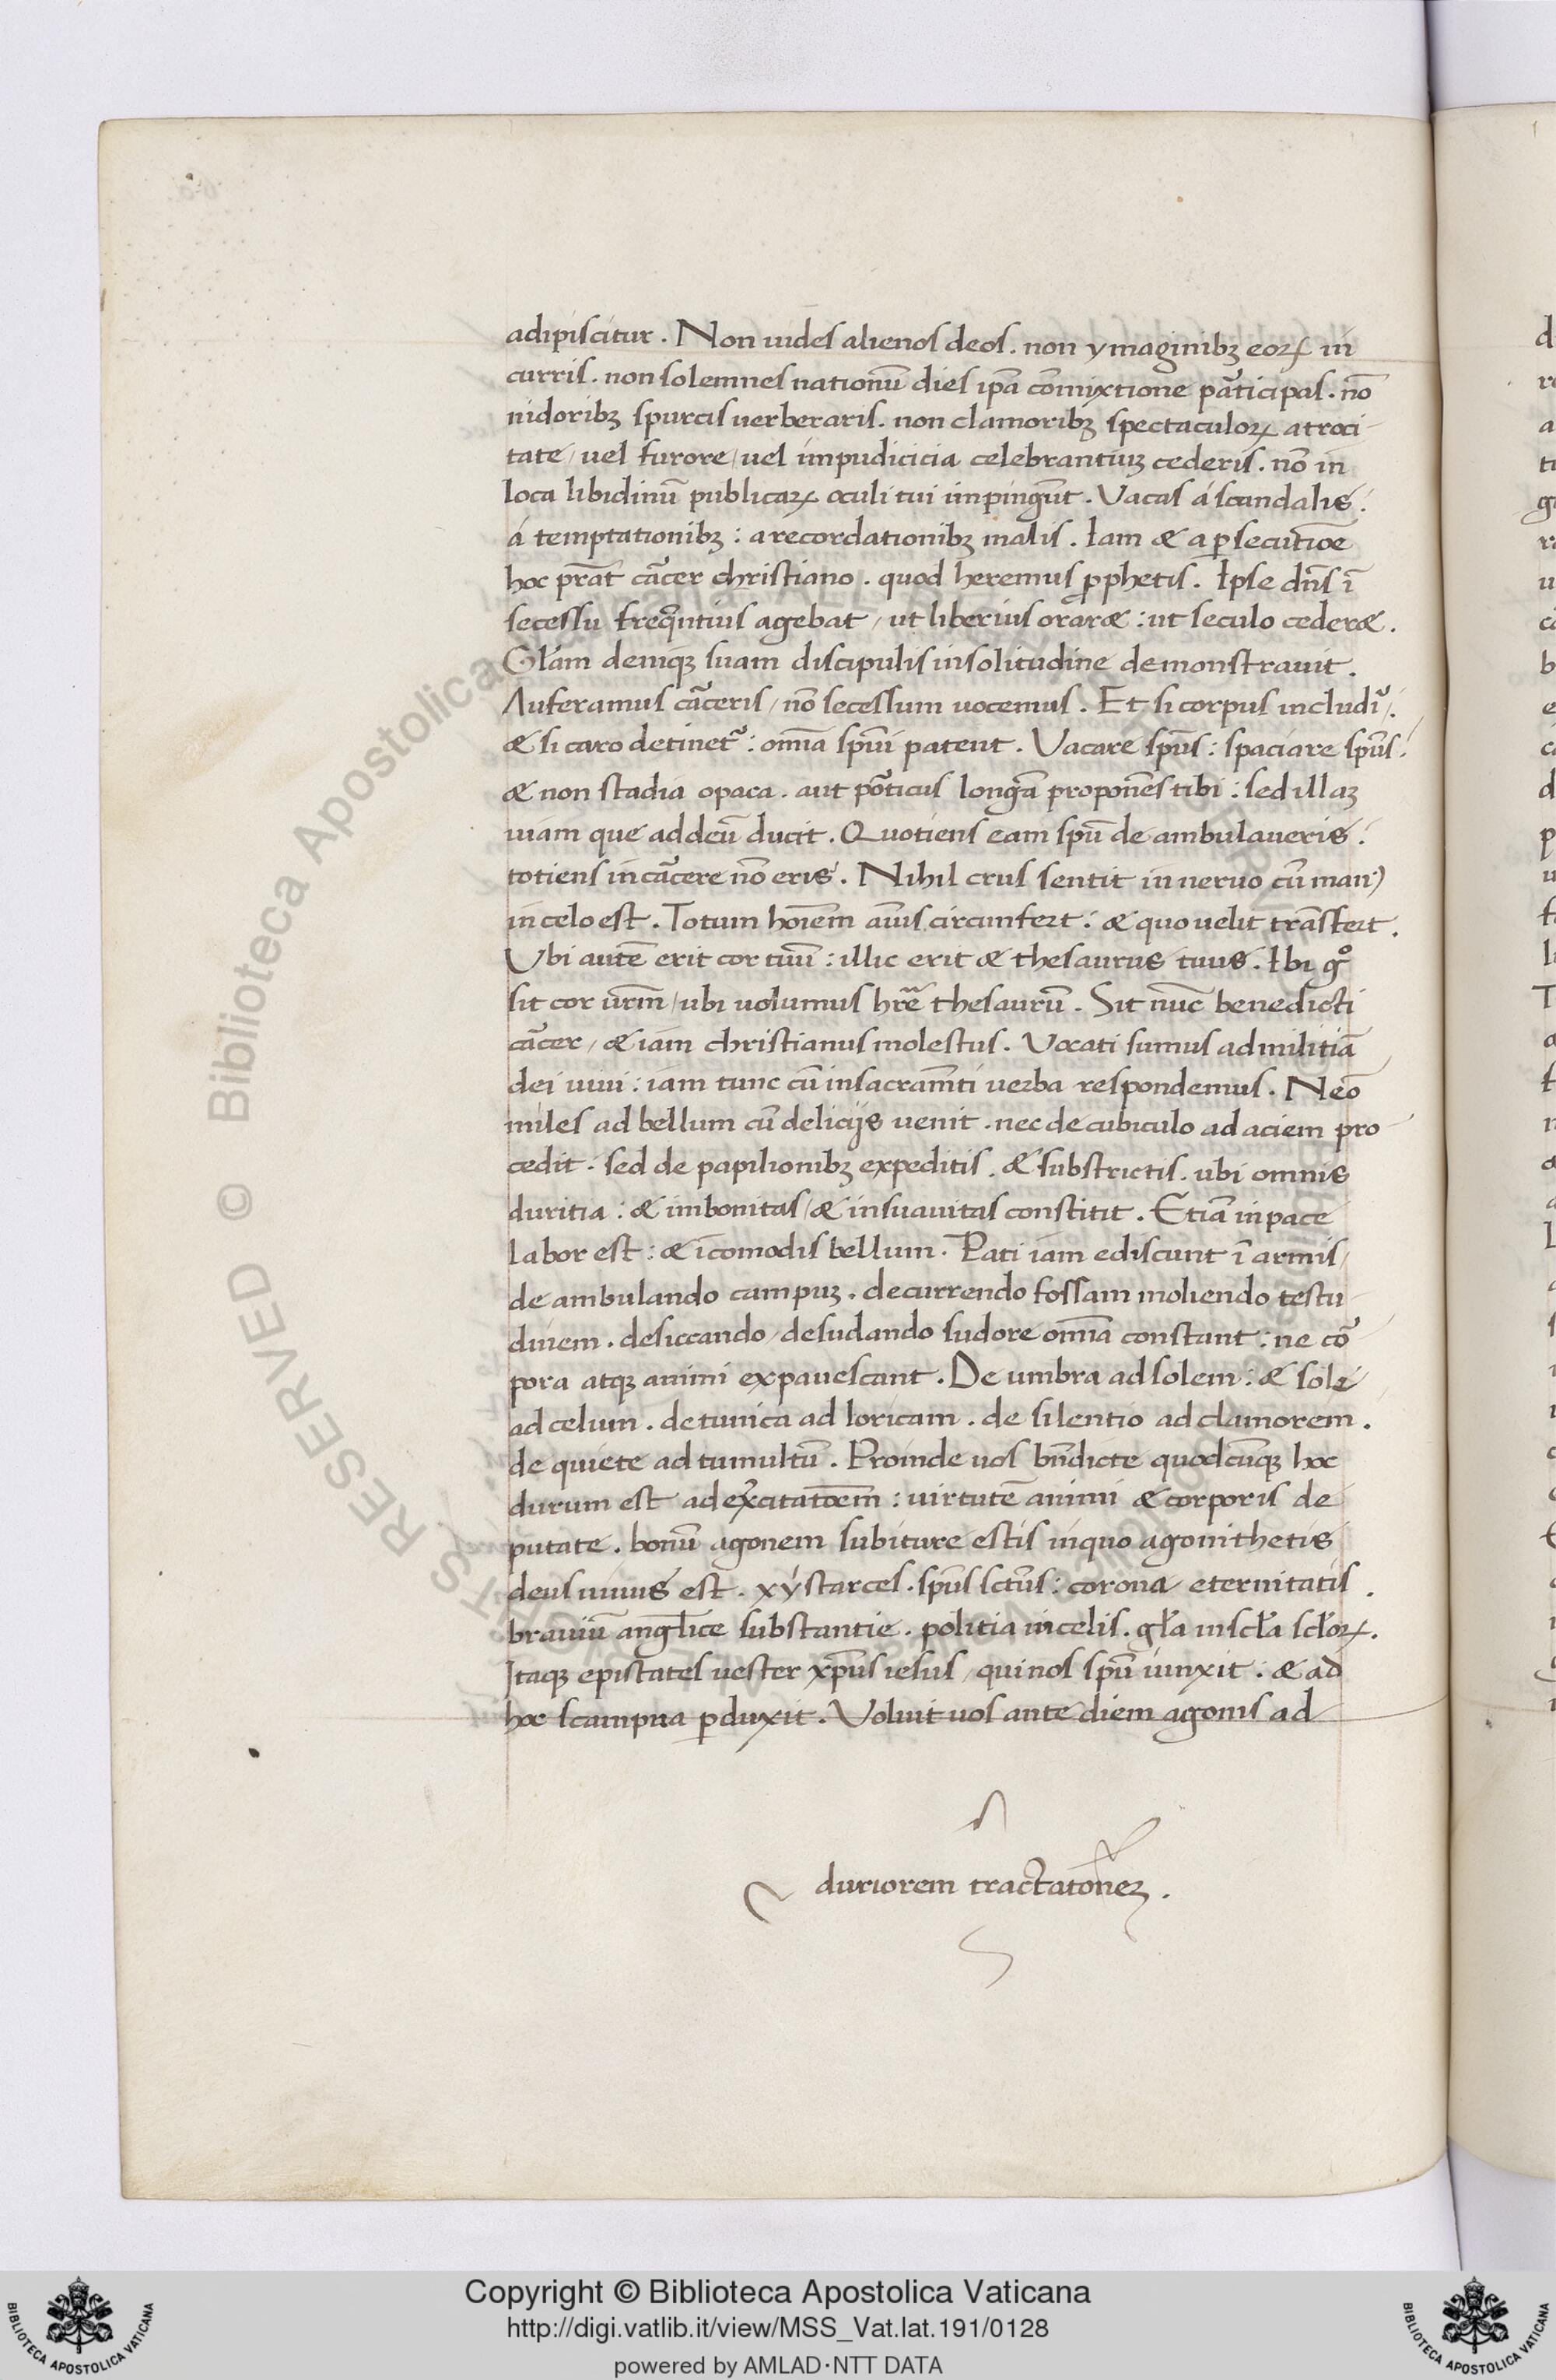 adipiscitur. Non uides alienos deos. non ymaginibꝫ eoꝝ in
curris. non solemnes nationū dies ip̄a cōmixtione pāticipas. nō
nidoribꝫ spurcis uerberaris. non clamoribꝫ spectaculoꝝ atroci-
tate, uel furore, uel impudicicia celebrantiuꝫ cederis. nō in
loca libidinū publicaꝝ oculi tui impingūt. Vacas á scandalis:
á temptationibꝫ: a recordationibꝫ malis. Iam & a ꝑsecutiōe
hoc prāt cācer christiano. quod heremus ꝓphetis. Ipse dn̄s ī
secessu freq̄ntius agebat, ut liberius orar&: ut seculo ceder&.
Glām deniqꝫ suam discipulis in solitudine demonstrauit.
Auferamus cāceris, nō secessum uocemus. Et si corpus includit᷑:
& si caro detinet᷑: omīa spūi patent. Vacare spūs: spaciare spūs:
& non stadia opaca. aut pōticus longā proponēs tibi: sed illaꝫ
uiam que ad deū ducit. Quotiens eam spū de ambulaueris:
totiens in cācere nō eris. Nihil crus sentit in neruo cū man9
in celo est. Totum hoīem aīus circunfert: & quo uelit trāsfert.
Vbi autē erit cor tuū: illic erit & thesaurus tuus. Ibi gͦ
sit cor ur̄m, ubi uolumus hr̄e thesaurū. Sit nūc benedicti
cācer, & iam christianus molestus. Vocati sumus ad militiā
dei uiui: iam tunc cū in sacramīti uerba respondemus. Neō
miles ad bellum cū delicijs uenit. nec de cubiculo ad aciem pro-
cedit: sed de papilionibꝫ expeditis. & substrictis. ubi omnis
duritia: & imbonitas, & insuauitas constitit. Etiā in pace
labor est: & īcomodis bellum. Pati iam ediscunt ī armis,
de ambulando campuꝫ. decurrendo fossam moliendo testu-
dinem. desiccando, desudando sudore omīa constant: ne cō
pora atqꝫ animi expauescant. De umbra ad solem: & sole
ad celum. de tunica ad loricam. de silentio ad clamorem.
de quiete ad tumultū. Proinde uos bn̄dicte quodcūqꝫ hoc
durum est ad ex̄citatōem: uirtutē animi & corporis de
putate. bonū agonem subiture estis in quo agonithetis
deus uiuus est. xýstarces. spūs sctūs: corona eternitatis.
brauiū anglīce substantie. politia in celis. gl̄a in scl̄a scl̄oꝝ.
Itaqꝫ epistates uester xp̄us iesus, qui nos spū iunxit: & ad
hoc scampna ꝑduxit. Voluit uos ante diem agonis ad
duriorem tractatōneꝫ.
Copyright © Biblioteca Apostolica Vaticana
http://digi.vatlib.it/view/MSS_Vat.lat.191/0128
powered by AMLAD·NTT DATA